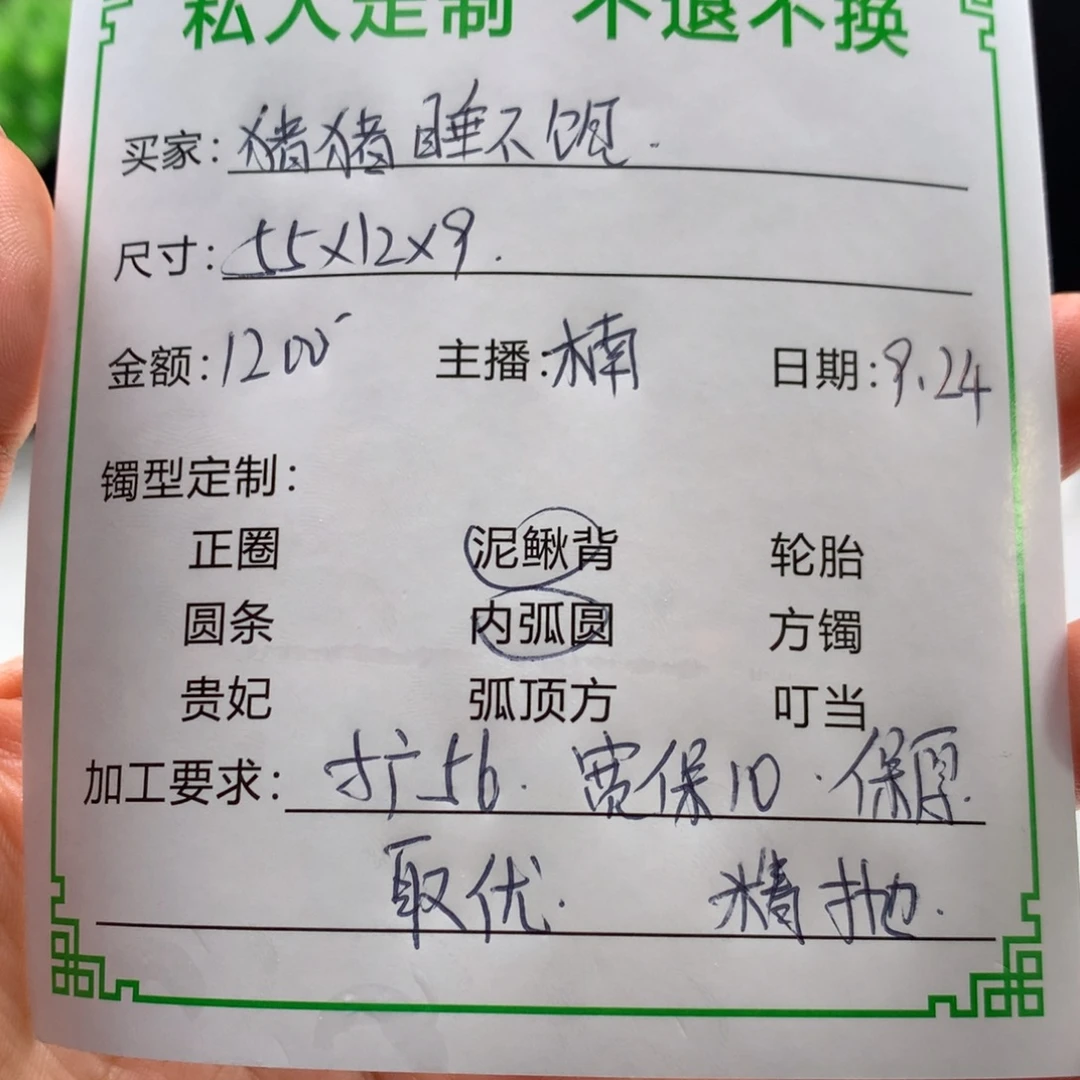 私人定制 不退不换
买家:猪猪睡不饱.
尺寸:55×12×9.
金额:1200 主播:楠 日期:9.24
镯型定制:
正圈 泥鳅背 轮胎
圆条 内弧圆 方镯
贵妃 弧顶方 叮当
加工要求: 扩56. 宽保10. 保厚.
取优. 精抛.